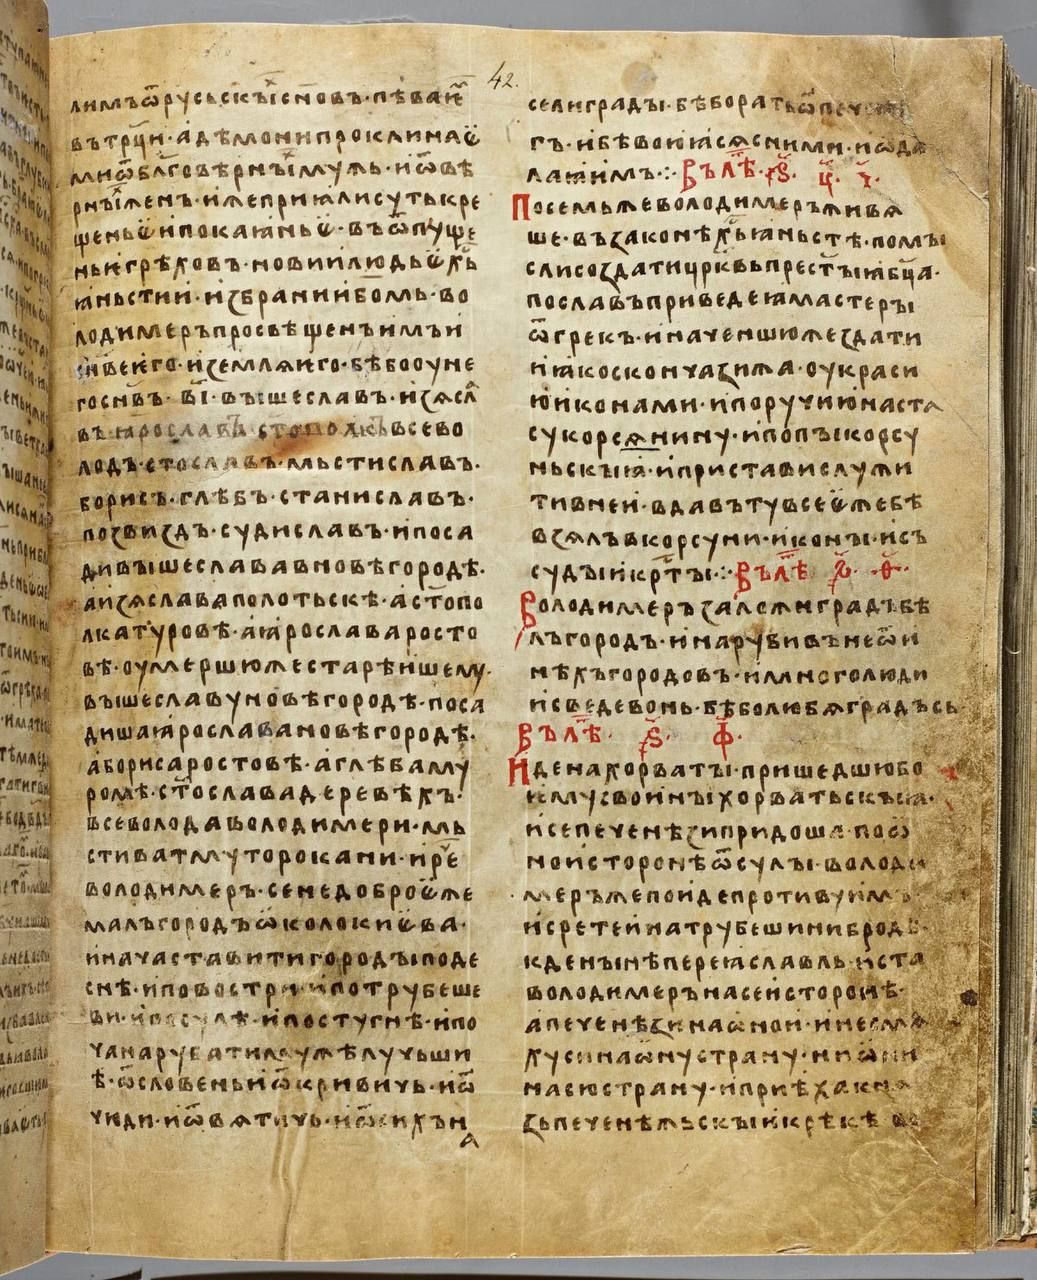 42.
лимъ ѿ русьскъіⷯ сн҃овъ · пѣваⷨ҇
въ трⷪ҇ци · а дѣмони проклинаѥ
ми ѿ бл҃говѣрнъіⷯ мужь · и ѿ вѣ
рнъіⷯ женъ · иже приꙗли суть кре
щеньѥ и покаꙗньѥ · въ ѿпуще
ньи грѣховъ · новии людьѥ хⷭ҇ь
ꙗньстии · избрании бо҃мь · во
лодимеръ просвѣщенъ и
и земля ѥго · бѣ бо оу не
го сн҃въ · в҃і · въішеславъ · изѧслⷶ
въ ꙗрославъ ст҃ополкъ всево
лодъ · ст҃ославъ · мьстиславъ ·
борисъ · глѣбъ · станиславъ ·
позвиздъ · судиславъ · и поса
ди въішеслава в новѣгородѣ ·
а изѧслава полотьскѣ · а ст҃опо
лка туровѣ · а ꙗрослава росто
вѣ · оумершю же старѣишему ·
въішеславу новѣгородѣ · поса
диша ꙗрослава новѣгородѣ ·
а бориса ростовѣ · а глѣба му
ромѣ · ст҃ослава деревѣхъ ·
всеволода володимери · мь
стива тмуторокани · и реⷱ҇
володимеръ · се не доброѥ же
малъ городъ ѡколо киѥва ·
и нача ставити городъі по де
снѣ · и по востри · и по трубеше
ви · и по сулѣ · и по стугнѣ · и по
ча нарубати лучьши
ѣ · ѿ словень и ѿ кривичь · и ѿ
чюди · и ѿ вятичь · и ѿ
сели градъі · бѣ бо рать ѿ печенѣ
гъ · и бѣ воюꙗсѧ с ними · и
лаꙗ имъ ⁘ в лѣⷮ҇ · ҂ѕ҃ · у҃ · ч҃ ·
Посемь же володимеръ живѧ
ше · въ законѣ хⷭ҇ьꙗньстѣ · помъі
сли создати црк҃вь прест҃ъіꙗ бц҃а ·
пославъ приведе ꙗ мастеръі
ѿ грекъ · и наченшю же здати
и ꙗко сконча зижа · оукраси
ю иконами · и поручи ю наста
су корсѧнину · и попъі корсу
ньскъіꙗ · и пристави служи
ти в неи · вдавъ ту все ѥже бѣ
взѧлъ в корсуни · иконъі · и съ
судъі и крⷭ҇тъі ⁘ в лѣⷮ҇
Володимеръ заложи градъ бѣ
лъгородъ · и наруби въ не ѿ и
нѣхъ городовъ · и много людии
и сведе во нь · бѣ бо любѧ градъ сь
в лѣⷮ҇ · ҂ѕ҃ · ф҃ ·
Иде на хорватъі · пришедшю бо
ѥму с воинъі хорватьскъіꙗ ·
и се печенѣзи придоша · по ѡ
нои сторонѣ ѿ сулъі · володи
меръ же поиде противу имъ
и срете и на трубеши на бродѣ ·
кде нъінѣ переꙗславль · и ста
володимеръ на сеи сторонѣ ·
а печенѣзи на ѡнои · и не смѧ
ху си на ѡну страну · ни ѡни
на сю страну · и приѣха кнѧ
зь печенѣжьскъіи к рѣкѣ